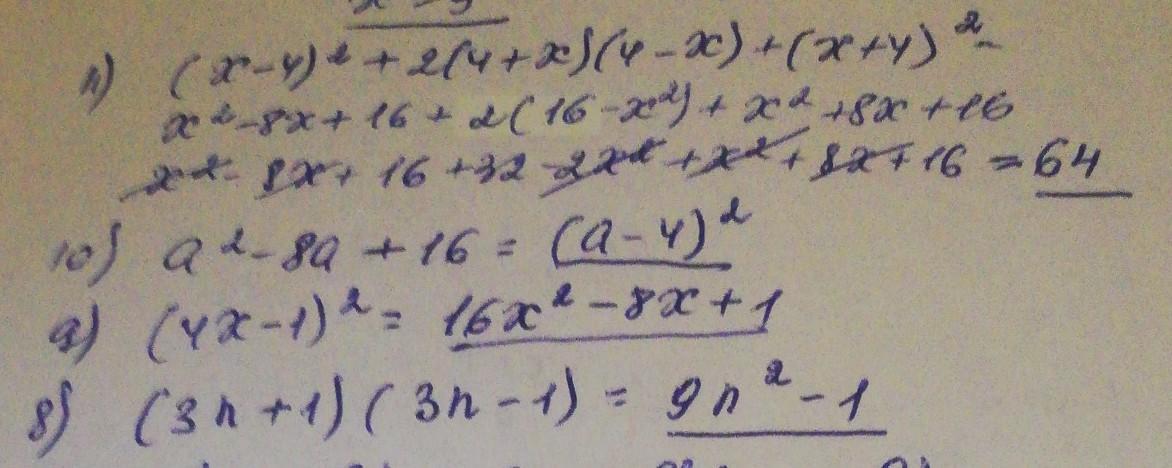 11) (x-4)² + 2(4+x)(4-x) + (x+4)² -
x² - 8x + 16 + 2(16 - x²) + x² + 8x + 16
x² - 8x + 16 + 32 - 2x² + x² + 8x + 16 = 64
10) a² - 8a + 16 = (a-4)²
9) (4x-1)² = 16x² - 8x + 1
8) (3n+1)(3n-1) = 9n² - 1